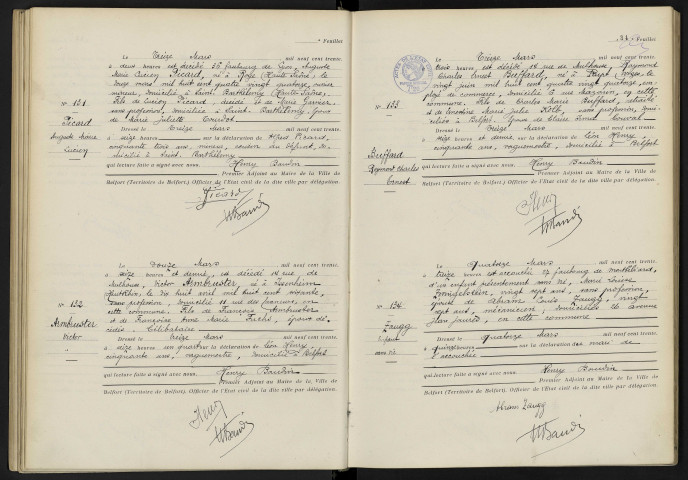 Feuillet
Le Treize Mars mil neuf cent trente.
à deux heures est décédé 38 faubourg de Lyon, Auguste
Marie Lucien Picard, né à Roye (Haute-Saône), le
onze mars mil huit cent quatre vingt quatorze,
mineur, domicilié à Saint Barthélemy (Haute-Saône),
Fils de Lucien Picard, décédé et de Marie
sans profession, domiciliée à Saint-Barthélemy. Epoux
de Marie Juliette
N° 131
Picard
Auguste Marie
Lucien
Dressé le Treize Mars mil neuf cent trente
à seize heures sur la déclaration de Alfred Picard,
cinquante trois ans, mineur, cousin du défunt, do-
micilié à Saint Barthélemy
qui lecture faite a signé avec nous, Henry Baudin
Premier Adjoint au Maire de la Ville de
Belfort (Territoire de Belfort), Officier de l'Etat civil de la dite ville par délégation.
Picard
Le Douze Mars mil neuf cent trente.
à seize heures et demie, est décédé 14 rue de
Mulhouse, Victor Armbruster, né à Isenheim
le 20 avril mil huit cent soixante,
sans profession, domicilié 11 rue des in
cette commune. Fils de François Armbruster
et de Françoise Anne Marie Fuchs, époux dé-
cédés. Célibataire
N° 132
Armbruster
Victor
Dressé le Treize Mars mil neuf cent trente
à dix heures un quart sur la déclaration de Léon Henry,
cinquante ans, domicilié à Belfort
qui lecture faite a signé avec nous, Henry Baudin
Premier Adjoint au Maire de la Ville de
Belfort (Territoire de Belfort), Officier de l'Etat civil de la dite ville par délégation.
Feuillet
Le Treize Mars mil neuf cent trente.
trois heures est décédé 14 rue de Mulhouse, Raymond
Charles Ernest Bieffard, né à (Vosges), le
vingt juin mil huit cent quatre vingt quatorze, em-
ployé de commerce, domicilié 2 rue en cette
commune. Fils de Charles Marie Bieffard, retraité
et de Marie Julie sans profession, domi-
ciliés à Belfort. Epoux de Claire
N° 133
Bieffard
Raymond Charles
Ernest
Dressé le Treize Mars mil neuf cent trente
à seize heures et demie sur la déclaration de Léon Henry
cinquante ans, domicilié à Belfort.
qui lecture faite a signé avec nous, Henry Baudin
Premier Adjoint au Maire de la Ville de
Belfort (Territoire de Belfort), Officier de l'Etat civil de la dite ville par délégation.
Le Quatorze Mars mil neuf cent trente.
à treize heures est accouchée 27 faubourg de Montbéliard,
d'un enfant présentement sans vie, Marie Louise
vingt sept ans, sans profession,
épouse de Abram Louis Zaugg, vingt
sept ans, mécanicien, domiciliés 16 avenue
Jean Jaurès, en cette commune
N° 134
Zaugg
Enfant
sans vie
Dressé le Quatorze Mars mil neuf cent trente
à quinze heures sur la déclaration du mari de
l'accouchée
qui lecture faite a signé avec nous, Henry Baudin
Premier Adjoint au Maire de la Ville de
Belfort (Territoire de Belfort), Officier de l'Etat civil de la dite ville par délégation.
Abram Zaugg